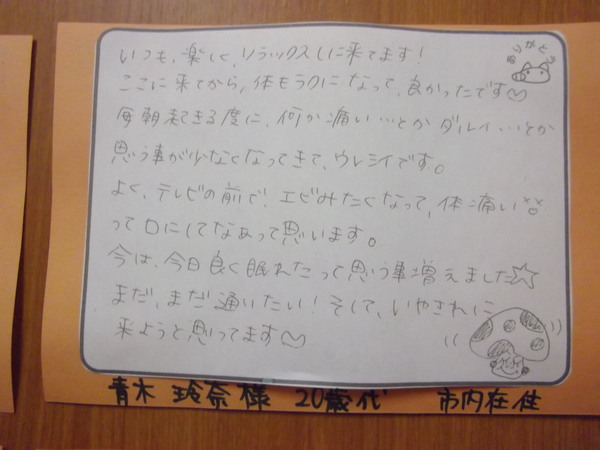 いつも、楽しく、リラックスしに来てます!
ありがとう
ここに来てから、体もラクになって、良かったです♡
毎朝起きる度に、何か痛い…とかダルイ…とか
思う事が少なくなってきて、ウレシイです。
よく、テレビの前で!エビみたくなって、体痛い
って口にしてたなあって思います。
今は、今日良く眠れたって思う事増えました☆
まだ、まだ通いたい!そして、いやされに
来ようと思ってます♡
青木 玲奈様 20歳代 市内在住